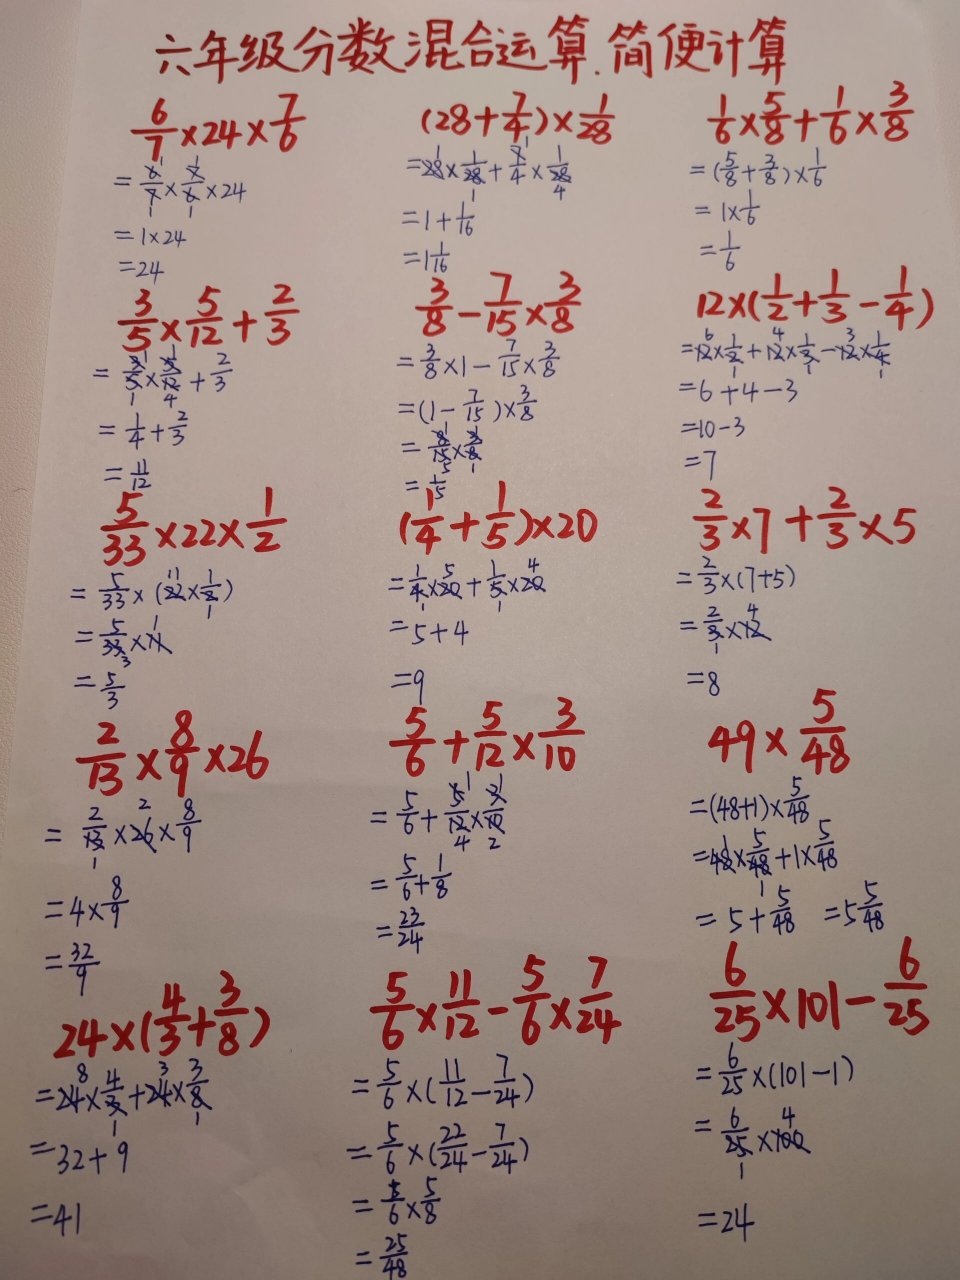 六年级分数混合运算.简便计算
6/7×24×7/6
=6/7×7/6×24
=1×24
=24
(28+7/4)×1/28
=28×1/28+7/4×1/28
=1+1/16
=1 1/16
1/6×5/8+1/6×3/8
=(5/8+3/8)×1/6
=1×1/6
=1/6
3/5×5/12+2/3
=3/5×5/12+2/3
=1/4+2/3
=11/12
3/8-7/15×3/8
=3/8×1-7/15×3/8
=(1-7/15)×3/8
=8/15×3/8
=1/5
12×(1/2+1/3-1/4)
=12×1/2+12×1/3-12×1/4
=6+4-3
=10-3
=7
5/33×22×1/2
=5/33×(22×1/2)
=5/33×11
=5/3
(1/4+1/5)×20
=1/4×20+1/5×20
=5+4
=9
2/3×7+2/3×5
=2/3×(7+5)
=2/3×12
=8
2/13×8/9×26
=2/13×26×8/9
=4×8/9
=32/9
5/6+5/12×3/10
=5/6+5/12×3/10
=5/6+1/8
=23/24
49×5/48
=(48+1)×5/48
=48×5/48+1×5/48
=5+5/48 =5 5/48
24×(4/3+3/8)
=24×4/3+24×3/8
=32+9
=41
5/6×11/12-5/6×7/24
=5/6×(11/12-7/24)
=5/6×(22/24-7/24)
=5/6×5/8
=25/48
6/25×101-6/25
=6/25×(101-1)
=6/25×100
=24